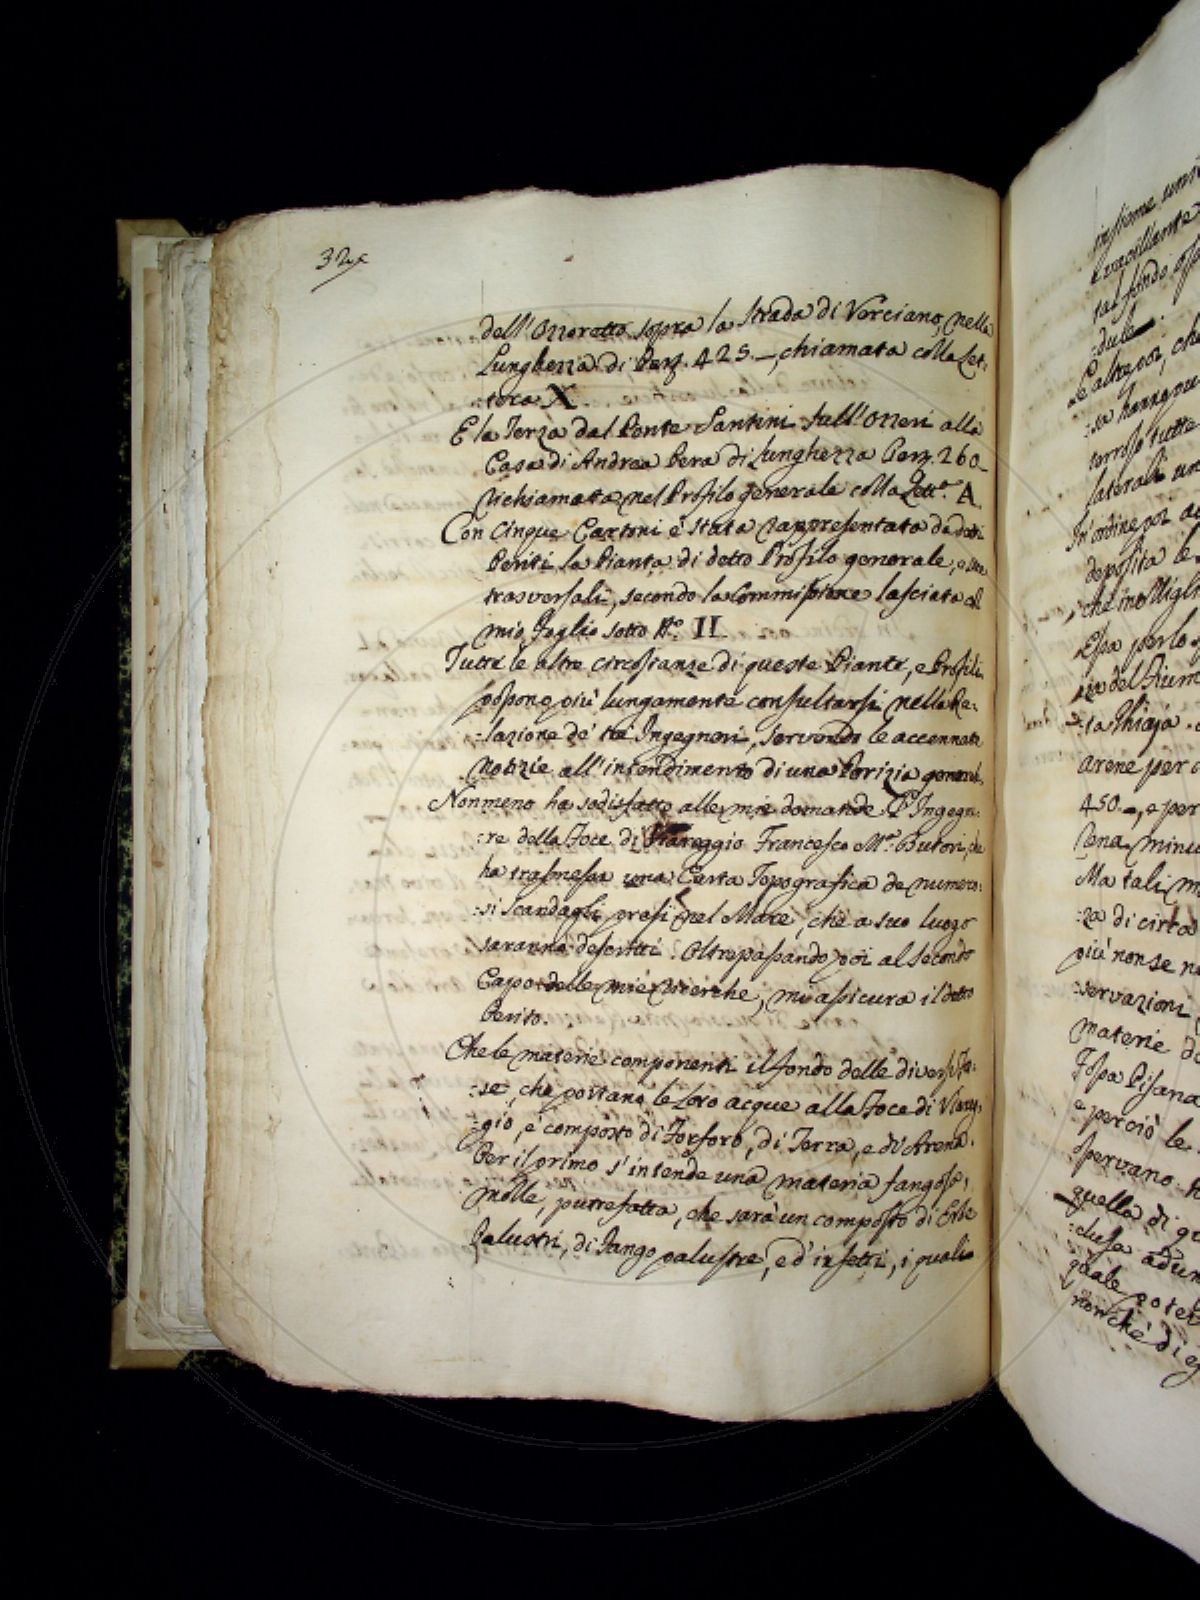 32
dell'Ozzoretto sopra la Strada di Verciano, nella
Lunghezza di Perz. 425 –, chiamata colla Let:
:tera X
E la Terza dal Ponte Santini sull'Ozzeri alla
Casa di Andrea Pera di Lunghezza Perz. 260 –
richiamata nel Profilo generale colla Lett.ª A
Con Cinque Cartoni è stata rappresentata da detti
Periti la Pianta di detto Profilo generale, e
trasversali, secondo la Commissione lasciata al
mio Foglio sotto N.º II.
Tutte le altre circostanze di queste Piante, e Profili
possono più lungamente consultarsi nella Re:
:lazione de' tre Ingegneri, servendo le accennate
notizie all'intendimento di una Perizia general.
Nonmeno ha sodisfatto alle mie domande Ingegn:
:re della Foce di Viareggio Francesco M.ª Butori, che
ha trasmessa una Carta Topografica de numero:
:si Scandagli presi nel Mare, che a suo luogo
saranno descritti. Oltrepassando poi al Secondo
Capo delle mie ricerche, mi assicura il detto
Perito.
Che le materie componenti il fondo delle diverse Fos:
:se, che portano le Loro acque alla Foce di Viareg:
:gio, è composto di Forforo, di Terra, e di Arena.
Per il primo s'intende una materia fangosa,
molle, putrefatta, che sarà un composto di Erbe
Palustri, di Fango palustre, e d'insetti, i quali
insieme
e vacillante
tal fondo
:dule.
Le altre poi, che
:sa hanno
terroso tutte
laterali un
In ordine poi
deposita le
che in 
Essa per lo
:za del Fium
:ta Ghiaja.
arene per
450. –, e per
lena minu
Ma tali m
:za di circa
più non se n
:servazioni
materie de
Fossa Pisana
e perciò le
osservano
quella di qu
:clusa adun
quale potet
non che di